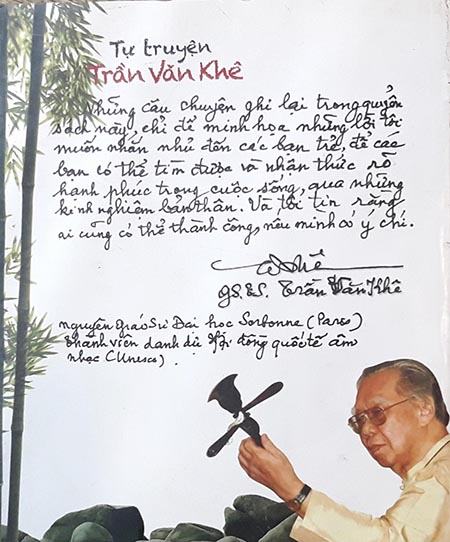 Tự truyện
Trần Văn Khê
Những câu chuyện ghi lại trong quyển
sách này, chỉ để minh họa những lời tôi
muốn nhắn nhủ đến các bạn trẻ, để các
bạn có thể tìm được và nhận thức rõ
hạnh phúc trong cuộc sống, qua những
kinh nghiệm bản thân. Và tôi tin rằng
ai cũng có thể thành công, nếu mình có ý chí.
GS.TS. Trần Văn Khê
nguyên giáo sư Đại học Sorbonne (Paris)
Thành viên danh dự Hội đồng quốc tế âm
nhạc (Unesco).